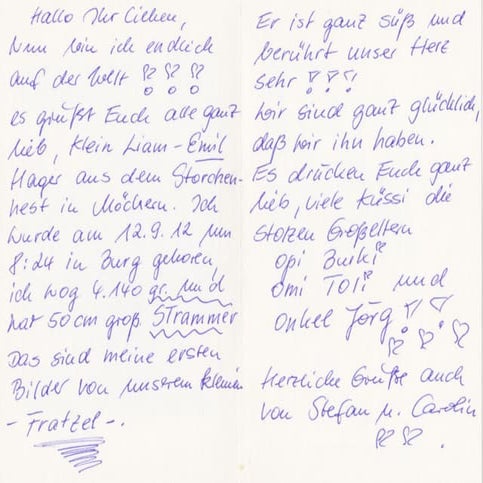 Hallo Ihr Lieben,
Nun bin ich endlich
auf der Welt !!!
es grüßt Euch alle ganz
lieb, klein Liam-Emil
Hager aus dem Storchen-
nest in Möckern. Ich
wurde am 12.9.12 um
8:24 in Burg geboren,
ich wog 4.140 gr. und
hat 50 cm groß. STrammer
Das sind meine ersten
Bilder von unserem kleinen
- Fratzel -.
Er ist ganz süß und
berührt unser Herz
sehr !!!
wir sind ganz glücklich,
daß wir ihn haben.
Es drücken Euch ganz
lieb, viele Küssi die
stolzen Großeltern
Opi
Omi und
Onkel Jörg !!
Herzliche Grüße auch
von Stefan u. Carolin